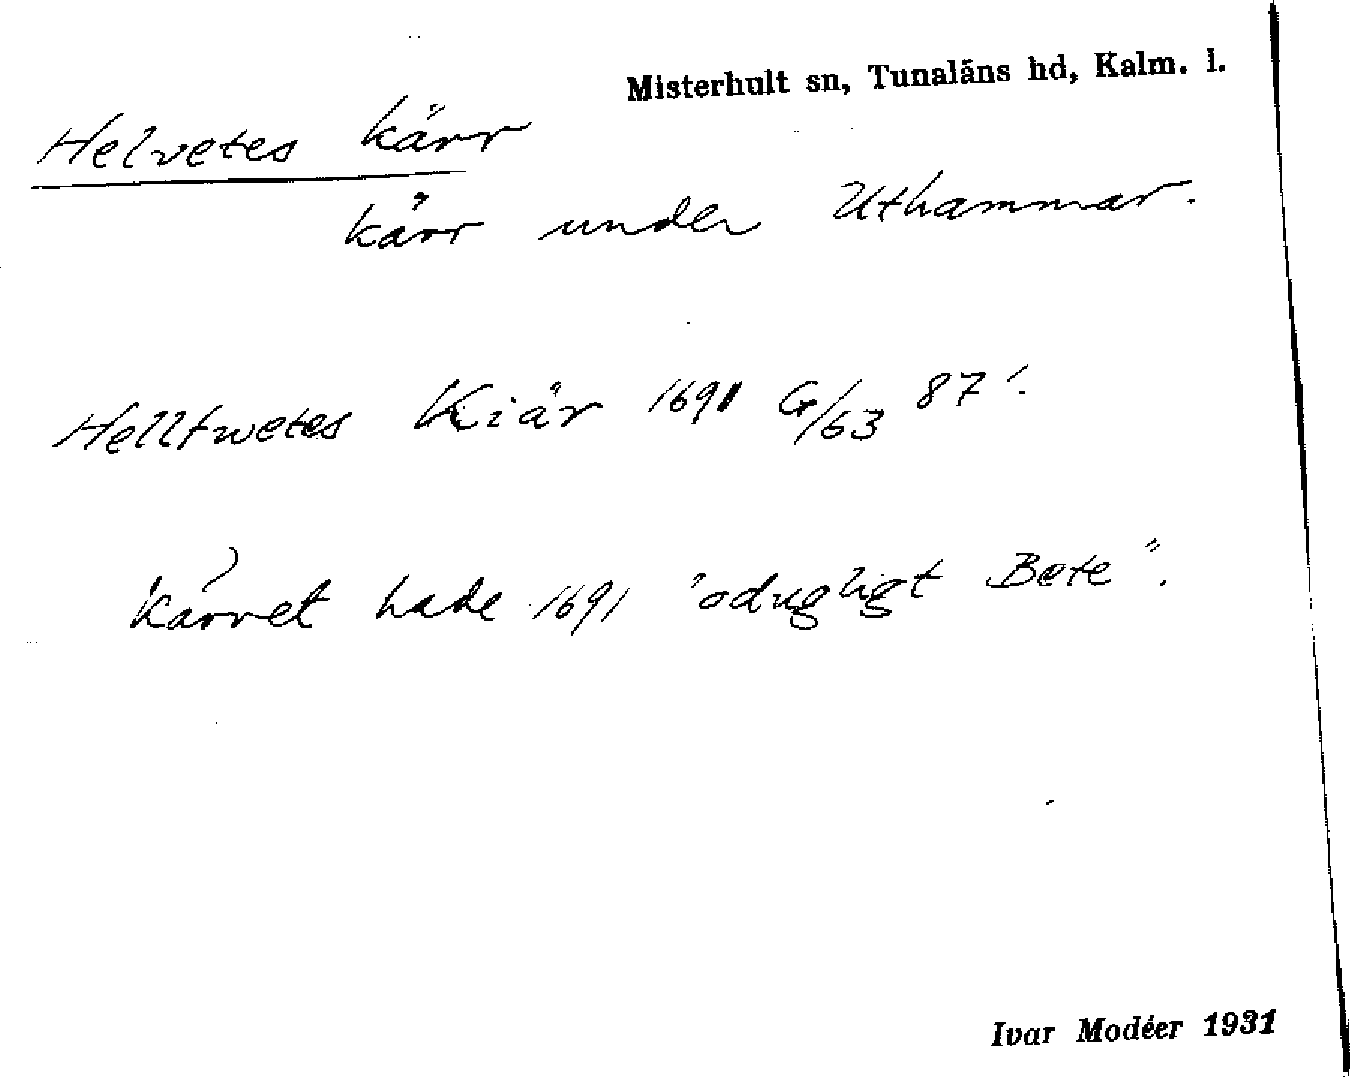 Misterhult sn, Tunaläns hd, Kalm. l.
Helvetes kärr
kärr under Uthammar.
Hellfwetes Kiär 1691 G/63 87:.
Kärret hade 1691 "odugligt Bete".
Ivar Modéer 1931